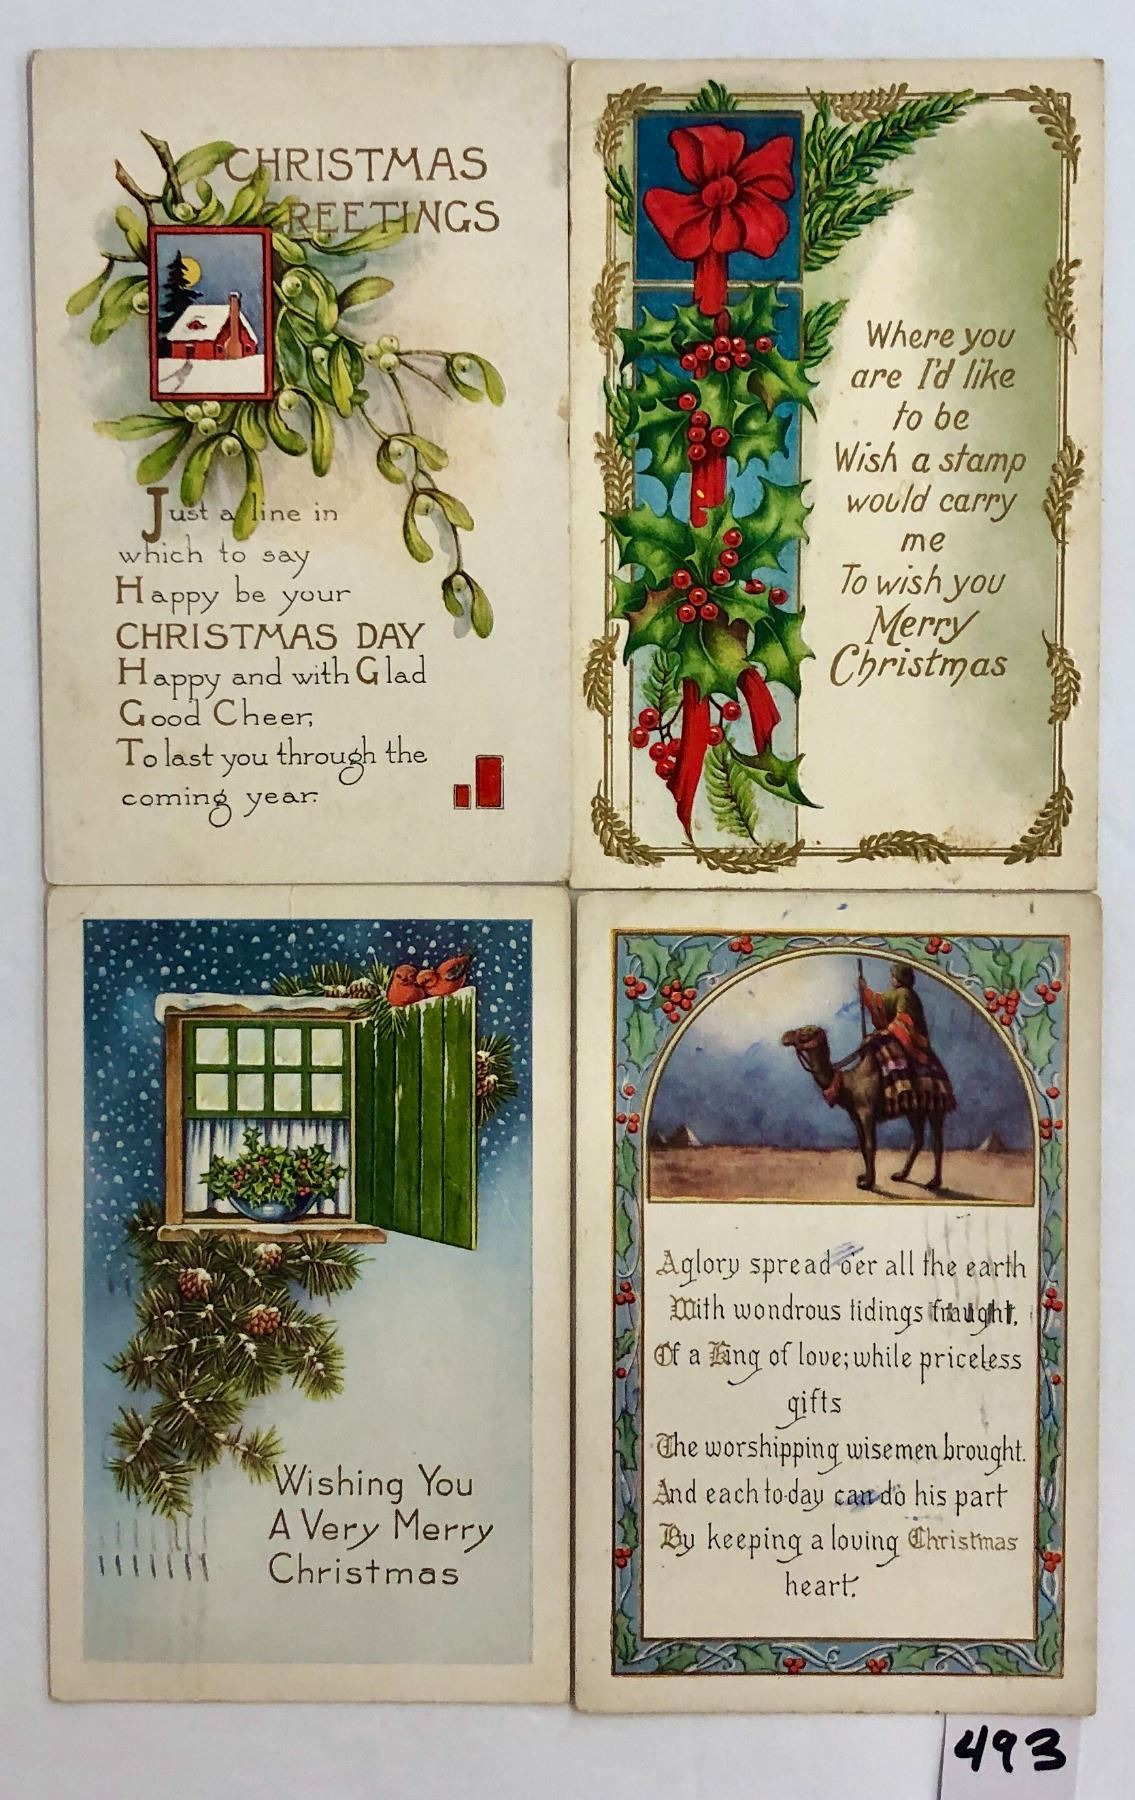 CHRISTMAS
GREETINGS
Just a line in
which to say
Happy be your
CHRISTMAS DAY
Happy and with Glad
Good Cheer,
To last you through the
coming year.
Where you
are I'd like
to be
Wish a stamp
would carry
me
To wish you
Merry
Christmas
Wishing You
A Very Merry
Christmas
A glory spread o'er all the earth
With wondrous tidings fraught,
Of a King of love; while priceless
gifts
The worshipping wisemen brought.
And each to-day can do his part
By keeping a loving Christmas
heart.
493